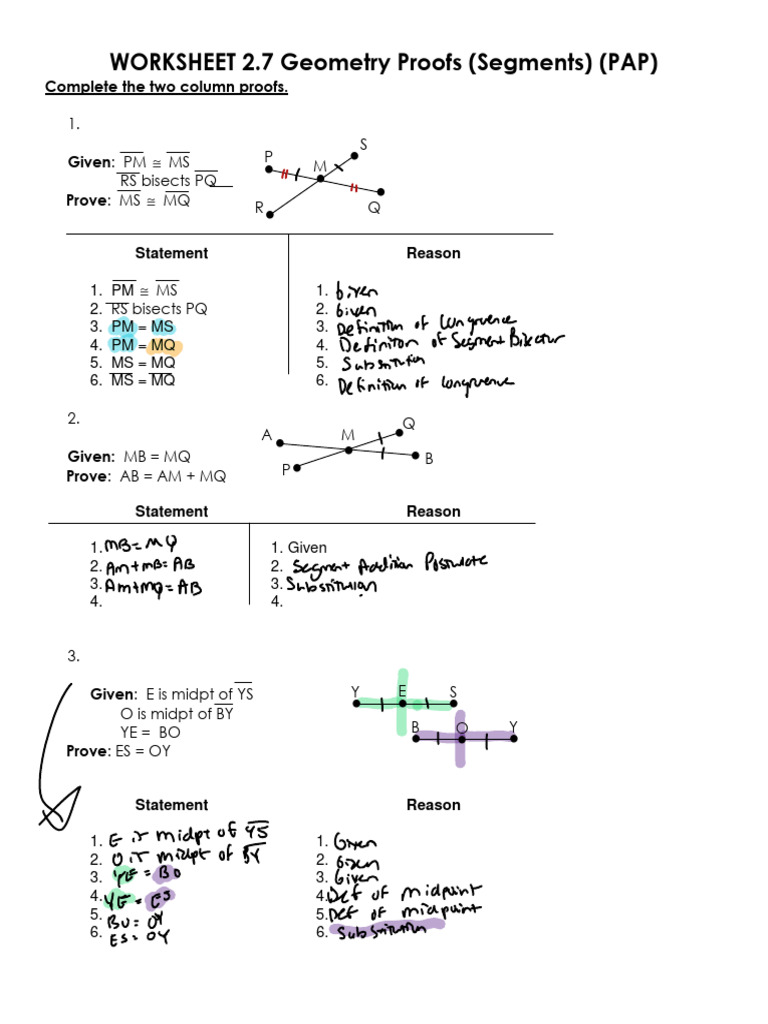 WORKSHEET 2.7 Geometry Proofs (Segments) (PAP)
Complete the two column proofs.
1.
Given: PM ≅ MS
RS bisects PQ
Prove: MS ≅ MQ
P
M
S
R
Q
Statement Reason
1. PM ≅ MS 1. Given
2. RS bisects PQ 2. Given
3. PM = MS 3. Definition of Congruence
4. PM = MQ 4. Definition of Segment Bisector
5. MS = MQ 5. Substitution
6. MS = MQ 6. Definition of Congruence
2.
Given: MB = MQ
Prove: AB = AM + MQ
A
M
Q
P
B
Statement Reason
1. MB = MQ 1. Given
2. AM+MB = AB 2. Segment Addition Postulate
3. AM+MQ = AB 3. Substitution
4. 4.
3.
Given: E is midpt of YS
O is midpt of BY
YE = BO
Prove: ES = OY
Y E S
B O Y
Statement Reason
1. E is midpt of YS 1. Given
2. O is midpt of BY 2. Given
3. YE = BO 3. Given
4. YE = ES 4. Def of midpoint
5. BO = OY 5. Def of midpoint
6. ES = OY 6. Substitution